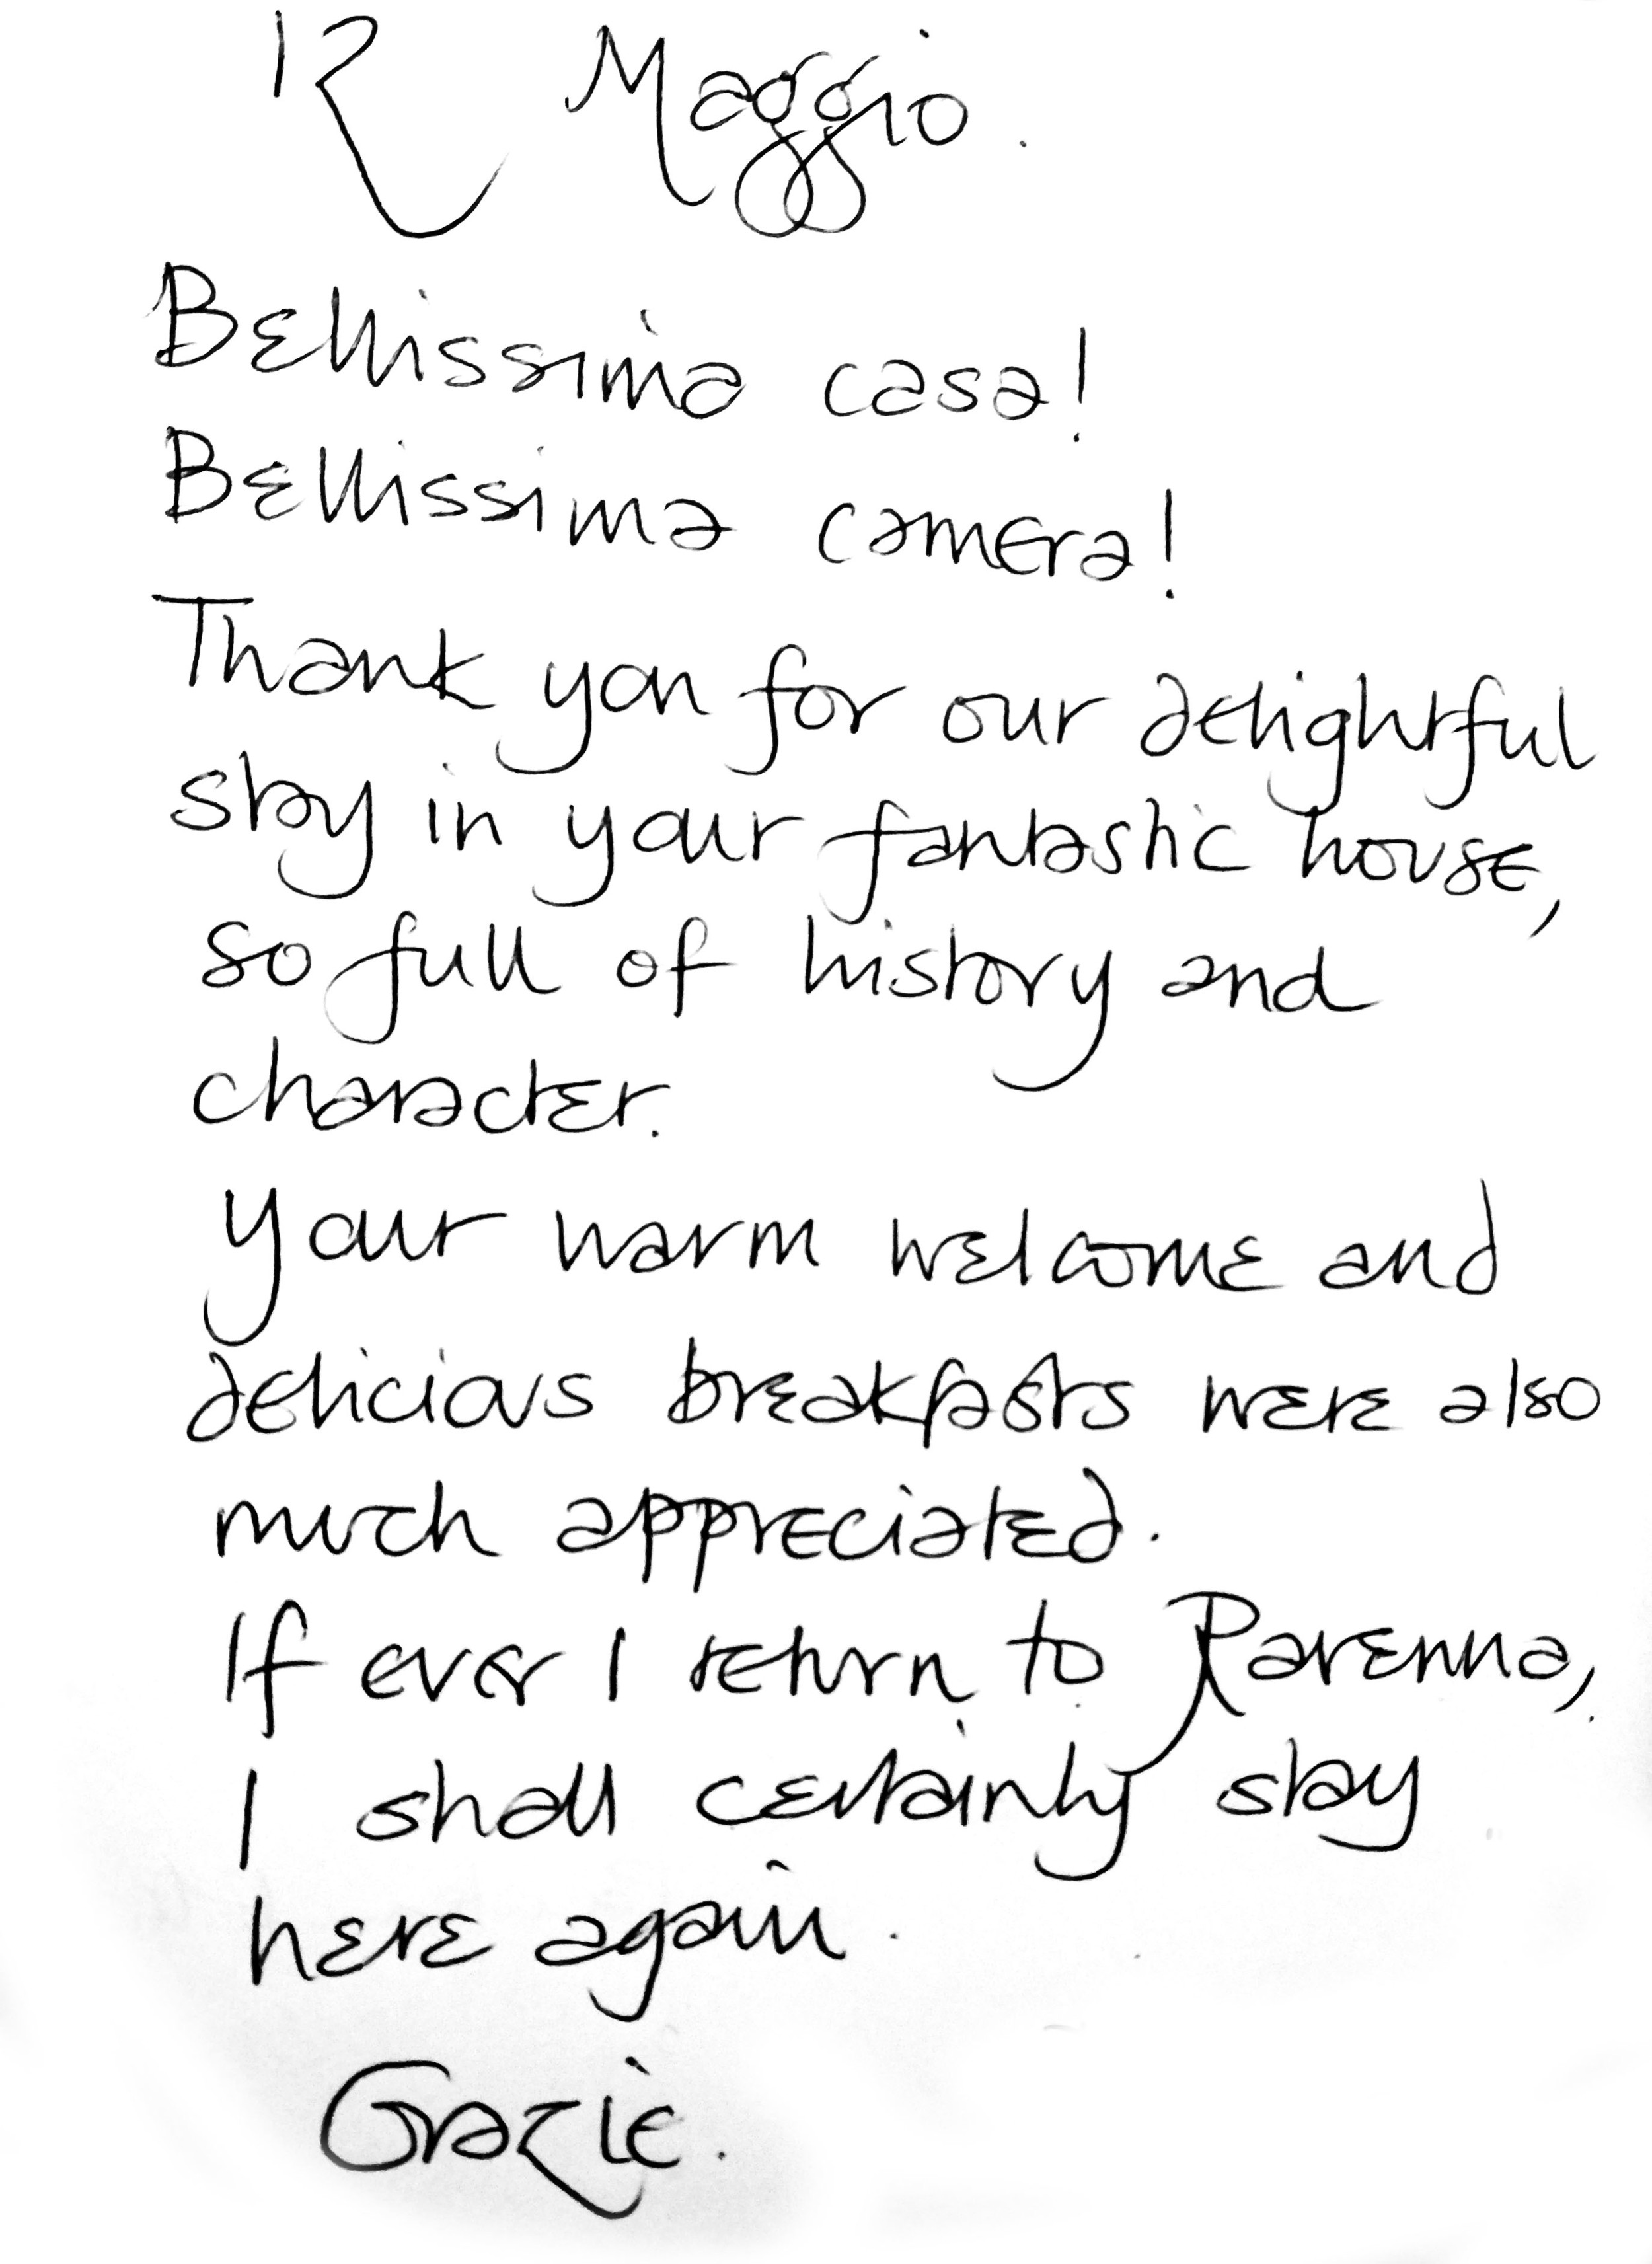 12 Maggio.
Bellissima casa!
Bellissima camera!
Thank you for our delightful
stay in your fantastic house,
so full of history and
character.
Your warm welcome and
delicious breakfasts were also
much appreciated.
If ever I return to Ravenna,
I shall certainly stay
here again.
Grazie.